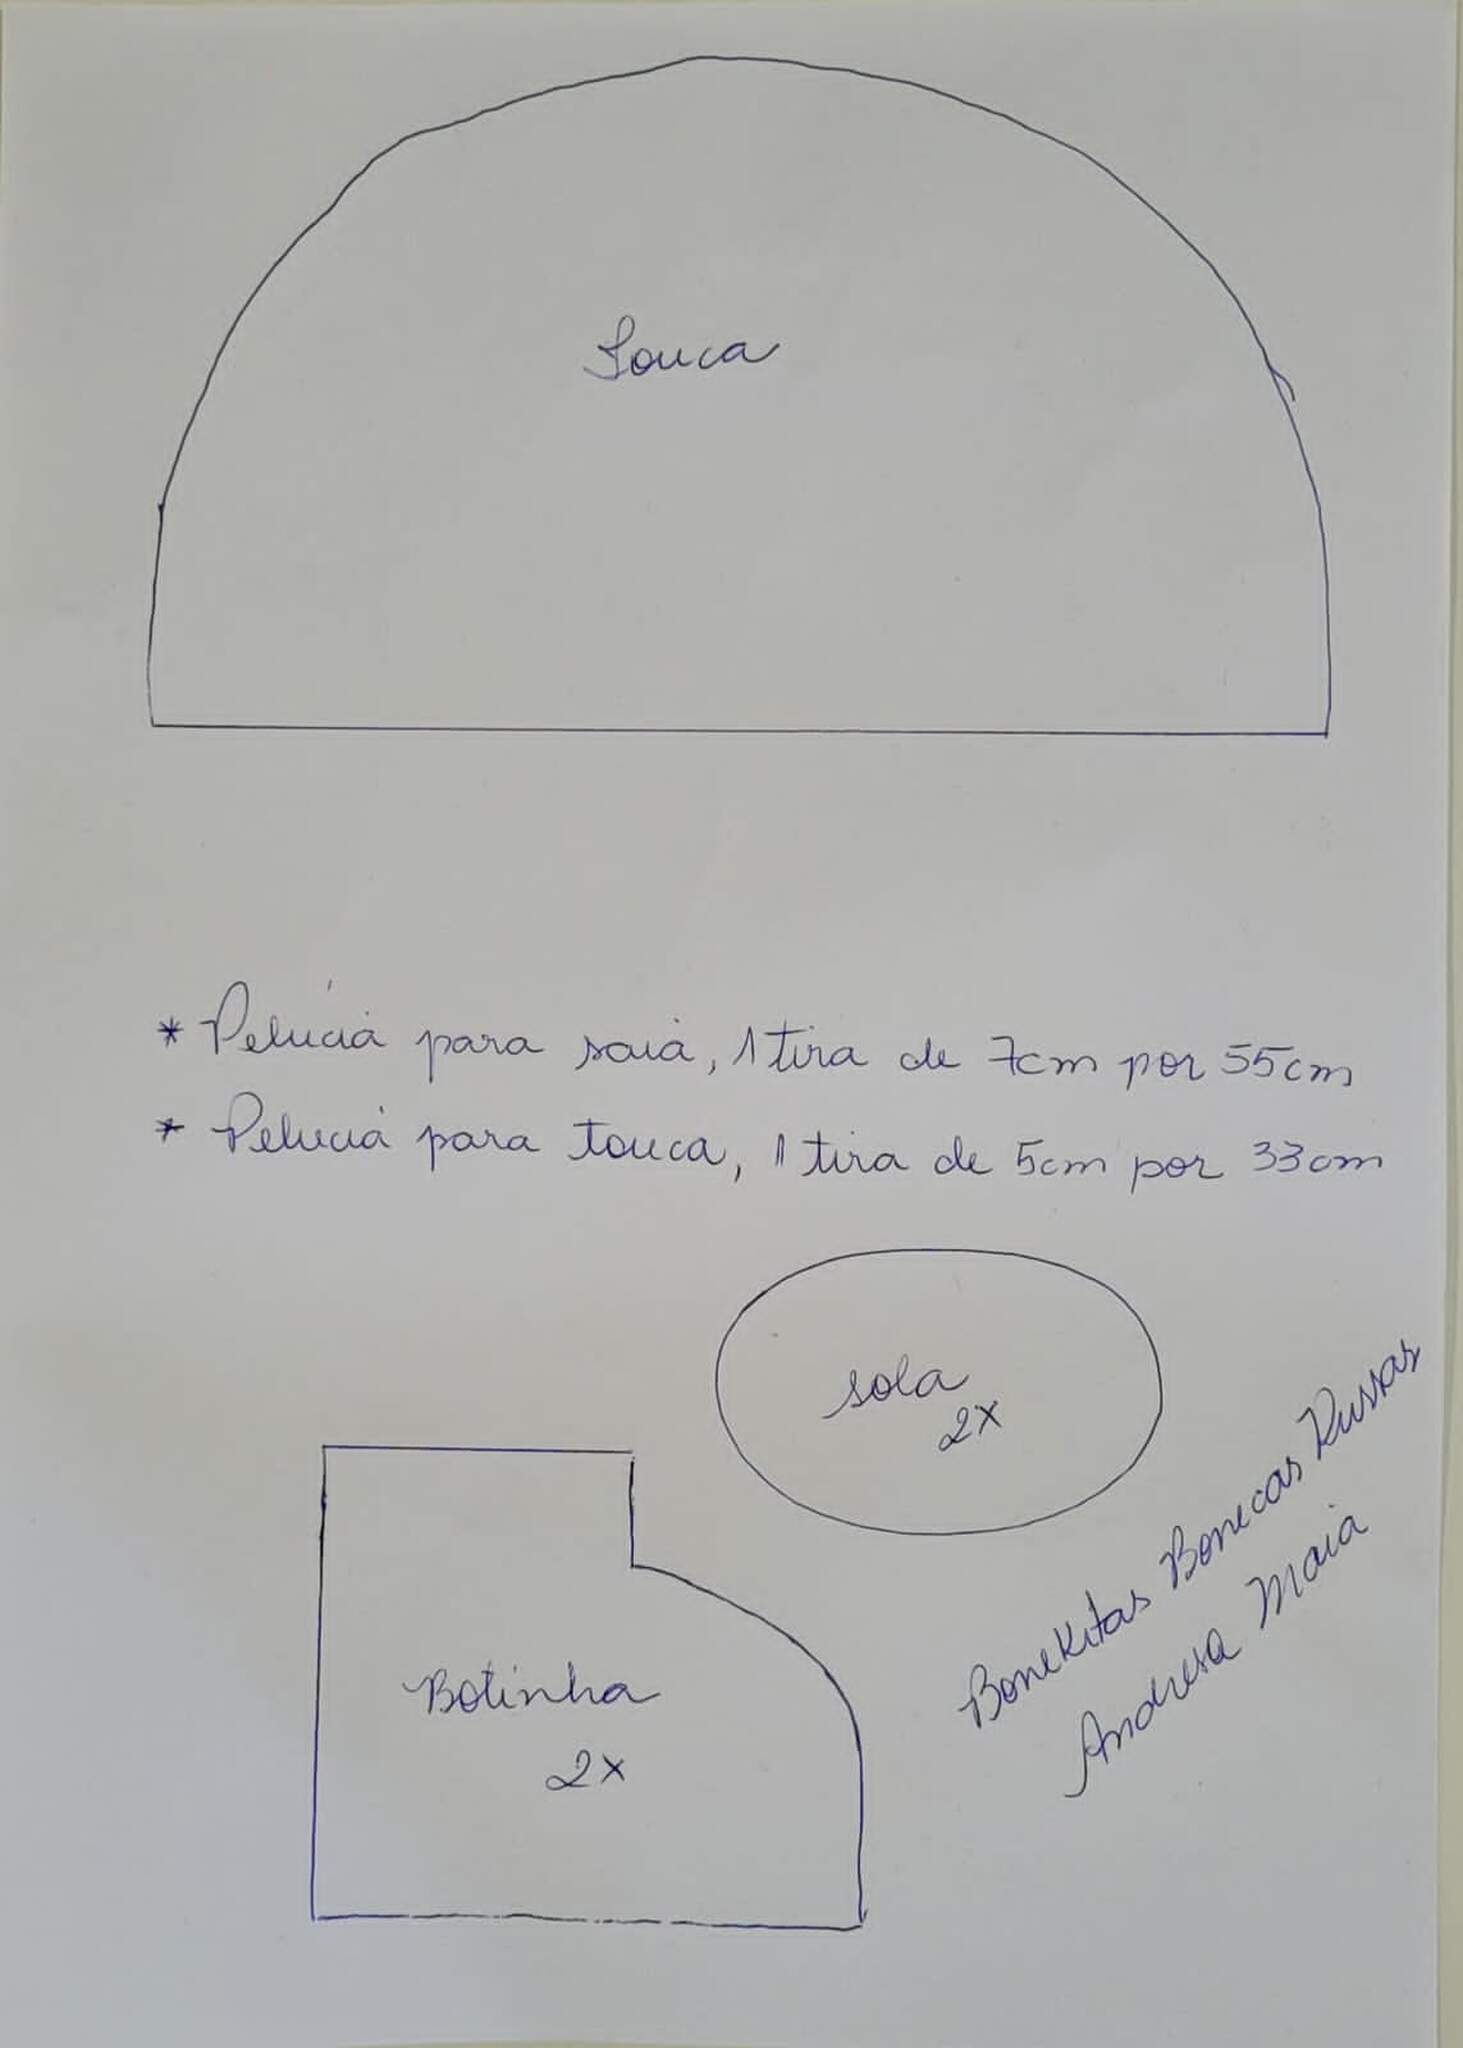 Touca
* Pelúcia para saia, 1 tira de 7cm por 55cm
* Pelucia para touca, 1 tira de 5cm por 33cm
sola
2x
Botinha
2x
Bonekitas Bonecas Russas
Andresa Maia